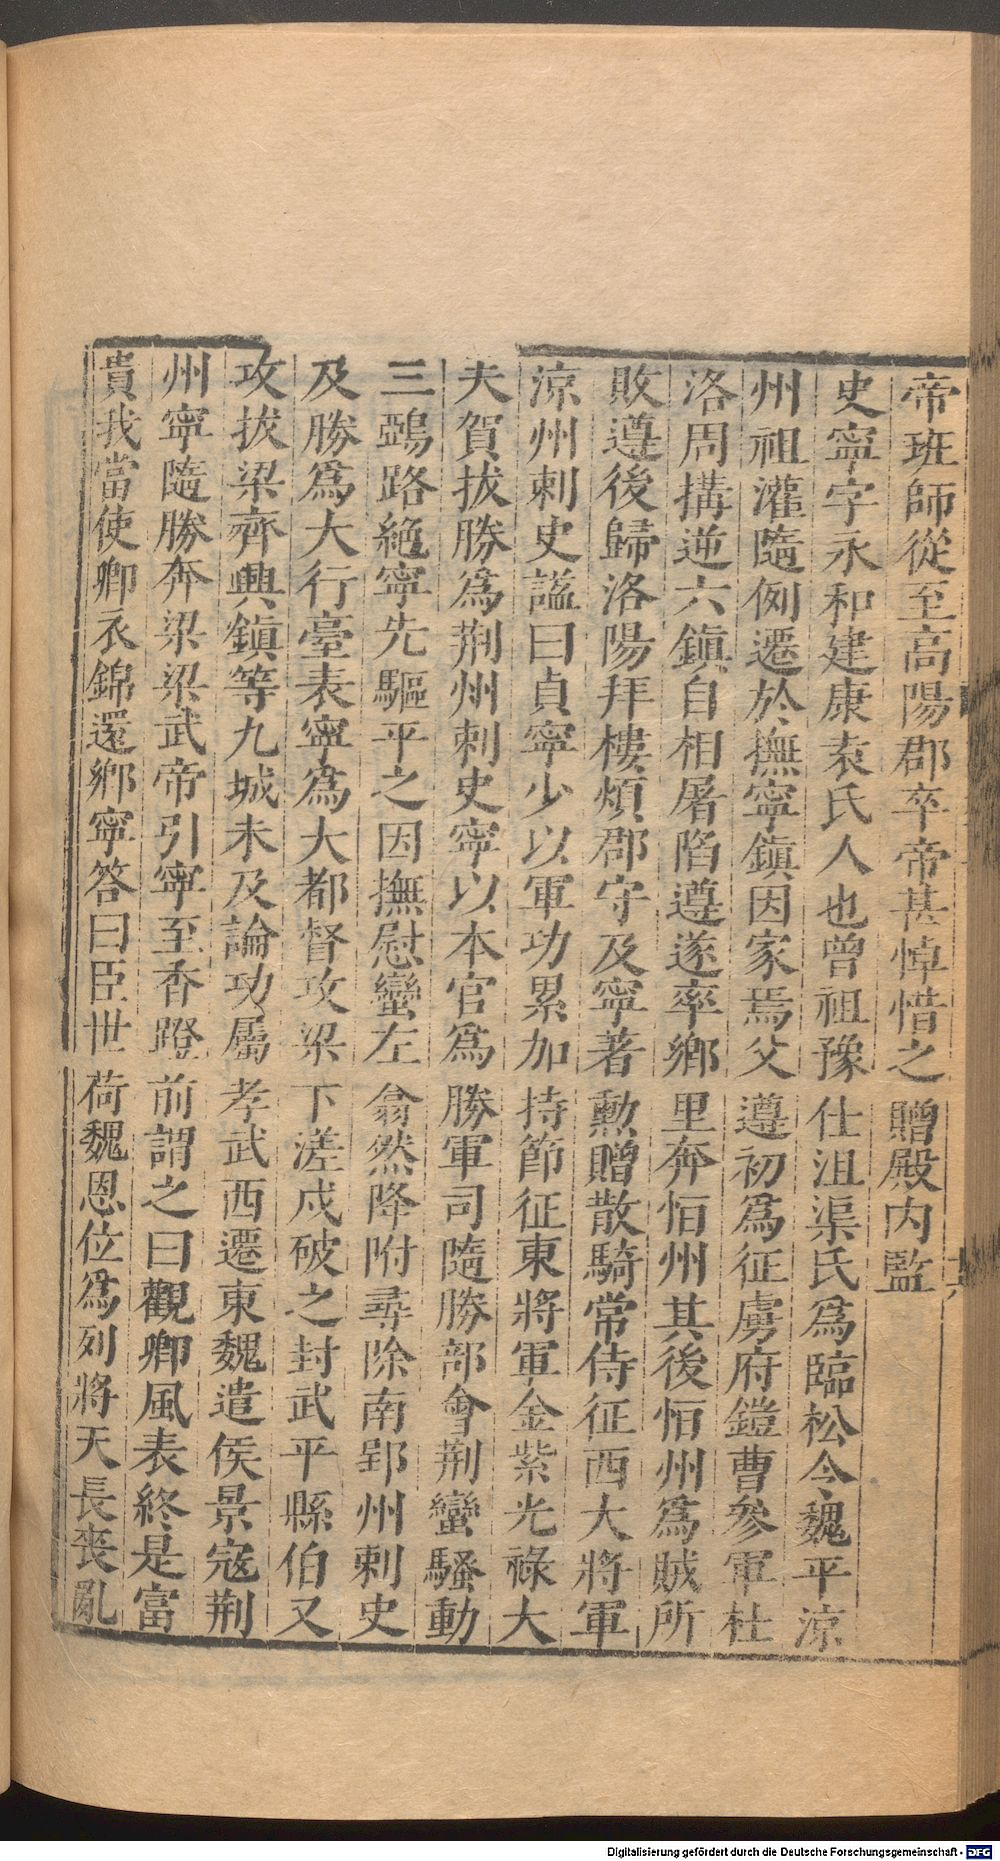 帝班師從至高陽郡卒帝甚悼惜之贈殿内監
史寧字永和建康袁氏人也曾祖豫仕沮渠氏爲臨松令魏平涼
州祖灌隨例遷於撫寧鎮因家焉父遵初爲征虜府鎧曹參軍杜
洛周搆逆六鎮自相屠陷遵遂率鄉里奔恒州其後恒州爲賊所
敗遵後歸洛陽拜樓煩郡守及寧著勲贈散騎常侍征西大將軍
涼州刺史諡曰貞寧少以軍功累加持節征東將軍金紫光祿大
夫賀拔勝爲荆州刺史寧以本官爲勝軍司隨勝部會荆蠻騷動
三鵶路絶寧先驅平之因撫慰蠻左翕然降附尋除南郢州刺史
及勝爲大行臺表寧爲大都督攻梁下溠戍破之封武平縣伯又
攻拔梁齊興鎮等九城未及論功屬孝武西遷東魏遣侯景寇荆
州寧隨勝奔梁梁武帝引寧至香蹬前謂之曰觀卿風表終是富
貴我當使卿衣錦還鄉寧答曰臣世荷魏恩位爲列將天長喪亂
十六
Digitalisierung gefördert durch die Deutsche Forschungsgemeinschaft - DFG